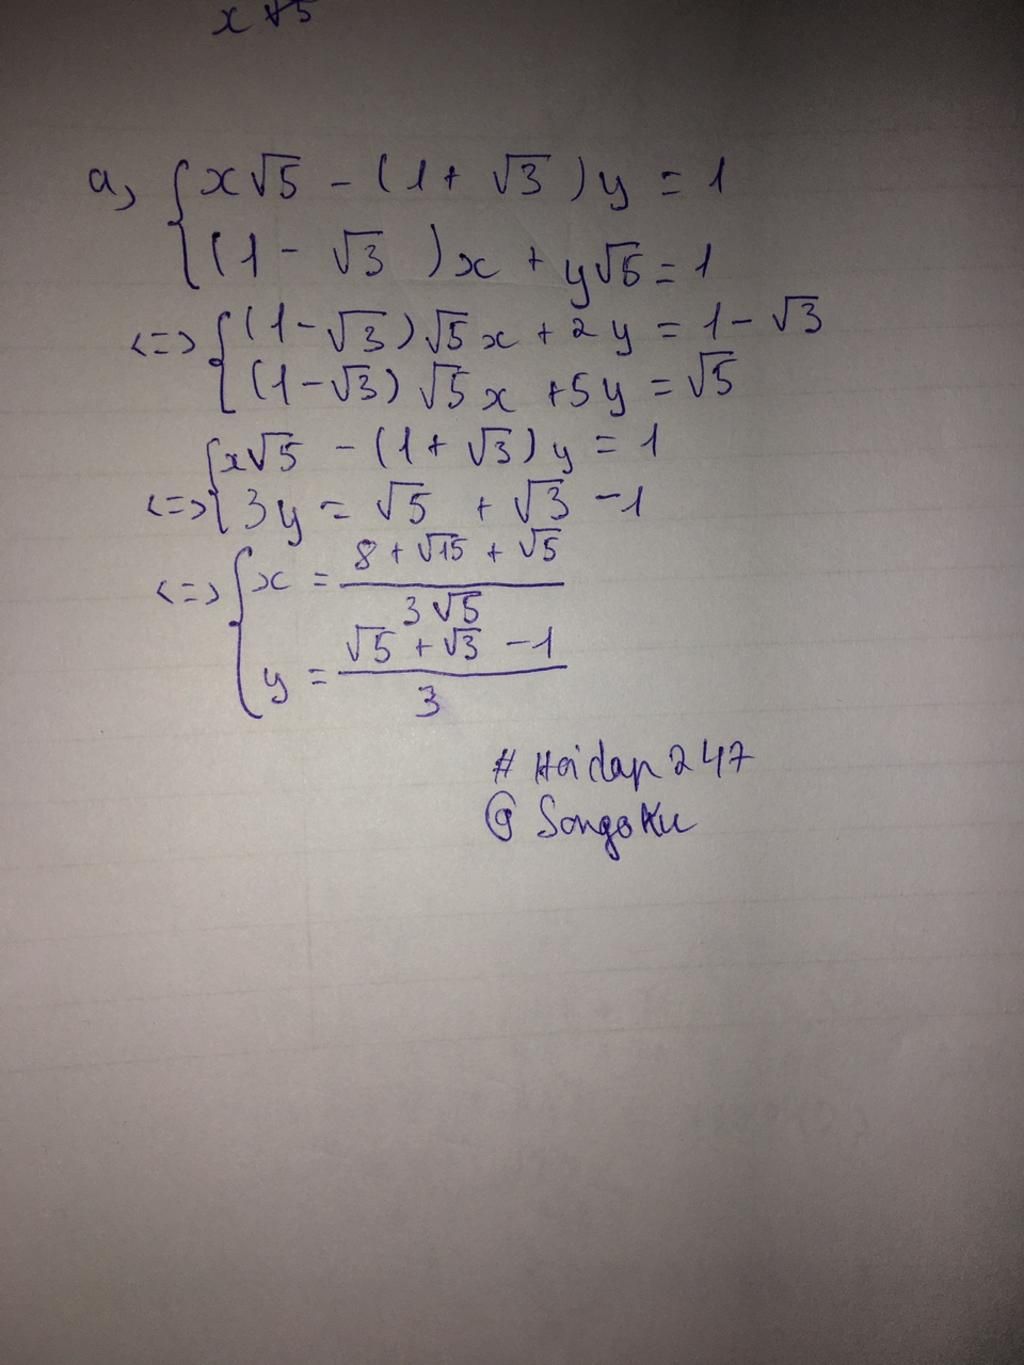 x√5
a, { x√5 - (1 + √3 ) y = 1
(1 - √3 )x + y√5 = 1
<=> { (1-√3)√5 x + 2y = 1 - √3
(1-√3) √5 x + 5y = √5
{ x√5 - (1 + √3) y = 1
<=> { 3y = √5 + √3 - 1
<=> { x = (8 + √15 + √5) / (3√5)
y = (√5 + √3 - 1) / 3
# Hoidap 247
@ SongoKu